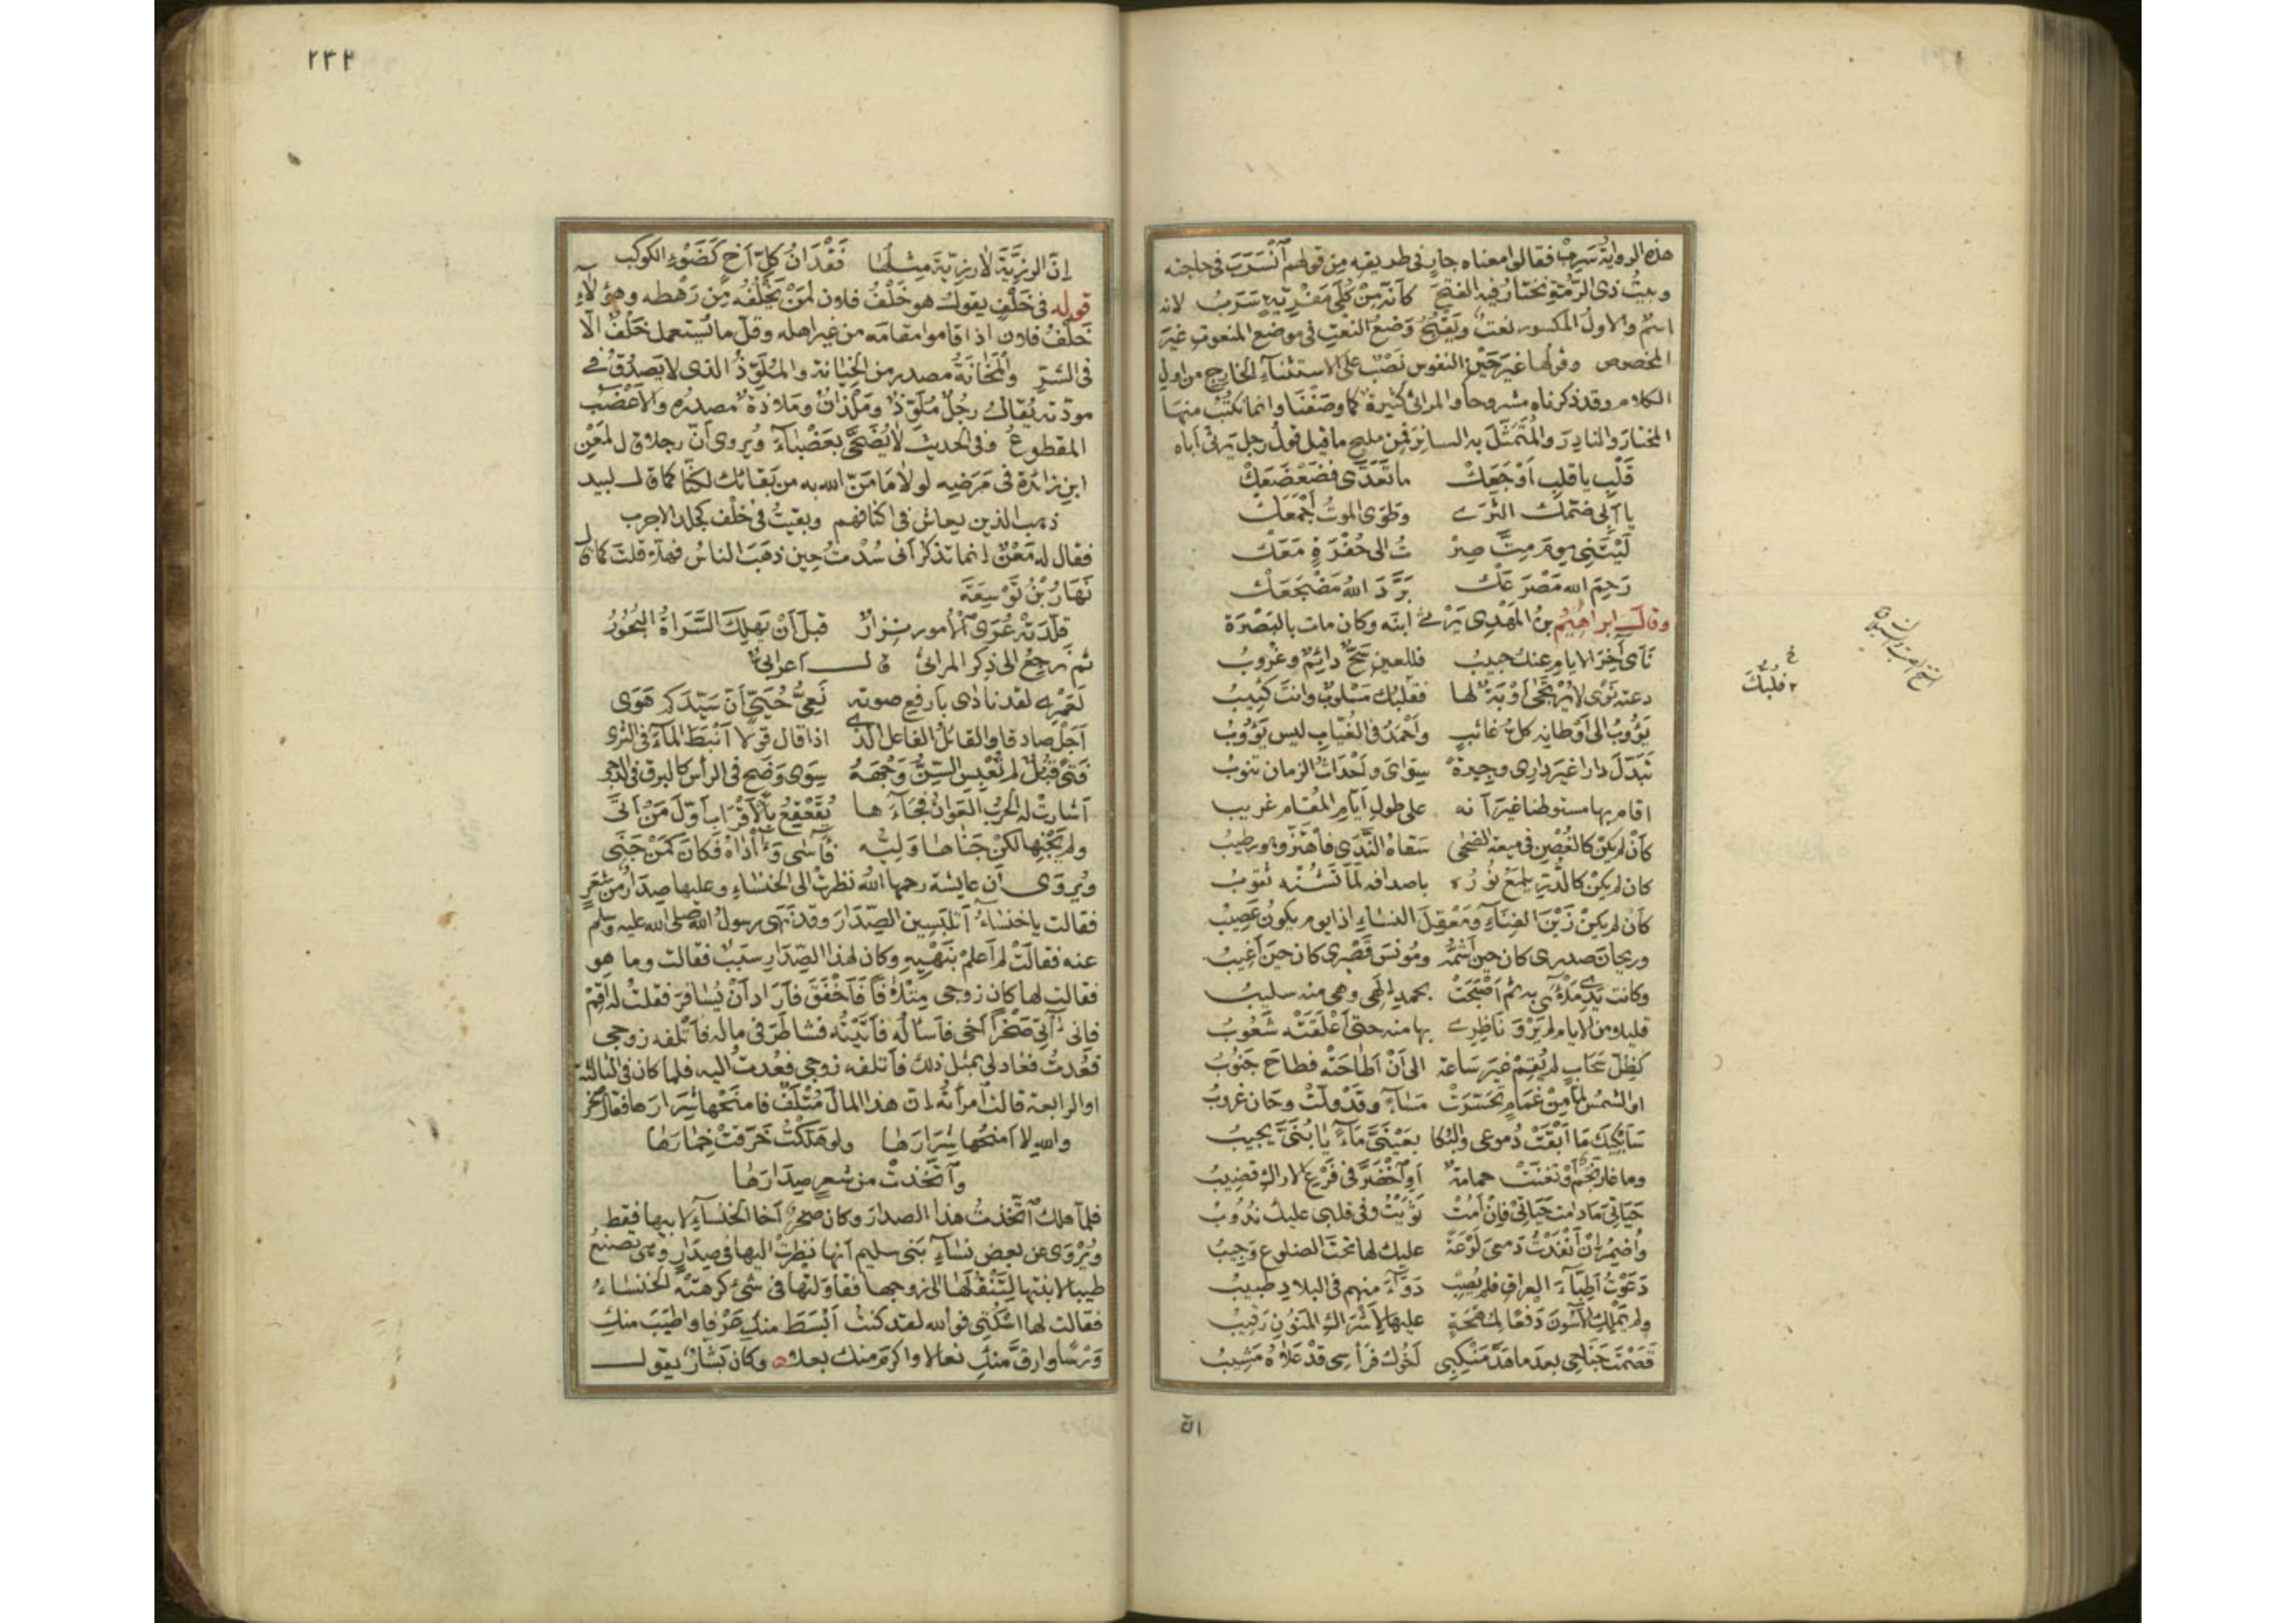 هذه الرواية سَرِبٌ فقالوا معناه جارٍ فى طريقه من قولهم اَنْسَرَبَ فى حاجته
وبيتُ ذى الرُّمَّةِ يختار فيه الفتحَ كانّه مِنْ كُلًى مَفْرِيّةٍ سَرَبُ لانه
اسمٌ والاول المكسور نعتٌ ويَقْبُحُ وَضْعُ النعْتِ فى موضع المنعوت غيرَ
المخصوص وقولها غيرَ حَيْنِ النفوس نَصْبٌ على الاستثناء الخارج من اول
الكلام وقد ذكرناه مشروحا والمراثى كثيرة كما وصَفْنَا وانما نكتُبُ منها
المختارَ والنادِرَ والمُتَمثَّلَ به السائِرَ فمِن مليح ما قيل قولُ رجل يَرثى اباه
قَلْبِ يا قلبِ اَوْجَعَكْ ما تَعَدَّى فضَعْضَعَكْ
يا اَبِى ضَمَّكَ الثرَى وطَوَى الموتُ اَجْمَعَكْ
لَيْتَنِى يومَ مِتَّ صِرْ تُ الى حُفْرَةٍ مَعَكْ
رَحِمَ الله مَصْرَعَكْ بَرَّدَ اللهُ مَضْجَعَكْ
وقال ابراهيمُ بنُ المَهْدِى يَرْثى ابنَه وكان مات بالبَصْرَة
نَأَى آخِرَ الايام عنك حبيبُ فللعين سَحٌّ دائِمٌ وغُروبُ
دعته نَوًى لا يُرْتَجَى اَوْبَةٌ لها فقلبُك مَسْلوبٌ وانتَ كئيبُ
يَؤُوبُ الى اَوْطانِه كلُّ غائبٍ واَحْمَدُ فى الغُيّابِ ليس يَؤُوبُ
تَبَدّلَ دارا غيرَ دارِى وجيرةً سِوَاىَ واَحْداثُ الزمان تنوبُ
اقام بها مستوطنا غيرَ اَنه على طولِ اَيّامِ المُقام غريبُ
كأَنْ لم يكنْ كالغُصْنِ فى ميعة الضحى سَقَاه النَّدَى فاهتزّ وهو رطيبُ
كان لم يكنْ كالدُّرِّ يلمعُ نُورُه باصدافه لَمّا تَشُنْه ثقوبُ
كأن لم يكنْ زَيْنَ الفِنَاءِ ومَعْقِلَ النساءِ اذا يوم يكونُ عَصِيبُ
وريحانَ صدرى كان حين اَشُمُّه ومُونسَ قَصْرِى كان حينَ اَغيبُ
وكانت يَدِى مَلأَى به ثم اَصْبَحَتْ بحمد الهى وهى منه سليبُ
قليلا من الايام لم يَرْوَ ناظِرِى بها منه حتى اَعْلَقَتْه شَعُوبُ
كظِلِّ سَحَابٍ لم يُقِمْ غيرَ ساعة الى اَنْ اَطَاحَتْه فطاحَ جَنُوبُ
او الشمسِ لمّا مِنْ غَمَامٍ تَحَسَّرَتْ مَساءً وقد ولّتْ وحَان غروبُ
سَأَبْكيكَ مَا اَبْقَتْ دُموعى والبُكا بعَيْنَىَّ مَاءً يا بُنَىَّ يجيبُ
وما غار نَجْمٌ أوْ تغنّتْ حمامةٌ اَوِ اخْضَرَّ فى فَرْعِ الاراك قضِيبُ
حَيَاتِىَ مَا دامت حَيَاتِى فاِنْ اَمُتْ ثَوَيْتُ وفى قلبى عليك ندُوبُ
وأُضْمِرُ اِنْ اَنْفَدْتُ دَمعِىَ لَوْعَةً عليك لها تحتَ الضلوع وَجِيبُ
دَعَوْتُ اَطِبّاءَ العراقِ فلم يُصِبْ دَوَاءَكَ منهم فى البلادِ طبيبُ
ولم يَمْلِكِ الآسُونَ دَفْعًا لمُهْجَةٍ عليها لاَشْرَاكِ المَنُونِ رَقيبُ
قَصَمْتَ جَنَاحِى بعدَ ما هَدَّ مَنْكِبِى اَخُوك فرَأسِى قدْ عَلاهُ مَشِيبُ
انّ
خ
قلبك
٢٣٢
اِنّ الرزِيّةَ لا رزِيّةَ مِثلُها فَقْدَانُ كلِّ اَخٍ كَضَوْءِ الكوكب
قوله فى خَلْفٍ يقول هو خَلْفُ فلان لمَنْ يَخْلُفُه مِن رَهْطه وهؤلاء
خَلْفُ فلان اذا قاموا مقامَه من غير اهله وقلّ ما يُستعمل خَلْفٌ الّا
فى الشرّ والمَخَانَةُ مصدر من الخِيانة والمُلَوِّذُ الذى لا يَصدُقُ فى
مودّته يُقال رجُلٌ مُلَوِّذٌ ومَلَذَانٌ ومَلاذَةٌ مصدره والاَعْضَبُ
المقطوعُ وفى الحديث لا يُضَحَّى بعَضْبَاءَ ويُروى اَنّ رجلا قال لمَعْن
ابنِ زائدة فى مَرَضِه لولا مَا مَنّ الله به من بَقائك لكنّا كما قال لبيد
ذهب الذين يعاش فى اكنافهم وبقيتُ فى خلْف كجلد الاجرب
فقال له مَعْنٌ اِنما تذكر اَنى سُدْتُ حين ذهَبَ الناسُ فهلّا قلتَ كما قال
نَهَارُ بْنُ تَوْسِعَةَ
قلّدَتْه عُرَى الأمور نِزارٌ قبلَ اَنْ يَهلِكَ السَّرَاةُ البُحُورُ
ثم نرجعُ الى ذِكر المراثى قال اعرابىٌّ
لَعَمْرِى لقد نادَى بِأَرفعِ صوته نَعِىُّ حُيَىٍّ اَنّ سَيّدَكم هَوَى
اَجَلْ صادقا والقائلُ الفاعلُ الّذى اذا قال قولا اَنْبَطَ الماءَ فى الثرى
فتًى قُبُلٌ لم تُعْبِسِ السِّنُّ وَجْهَهُ سِوَى وَضَحٍ فى الرأسِ كالبرق فى الدجى
اَشارتْ له الحربُ العَوَانُ فجَاءَها يُقَعْقِعُ بالاَقْرَابِ اَوّلَ مَنْ اَتَى
ولم يَجْنِها لكنْ جَنَاها وَلِيُّه فآسَى وآدَاهُ فكانَ كَمَنْ جَنَى
ويُروَى اَن عايشة رحمها اللهُ نظرتْ الى الخنساءِ وعليها صِدَارٌ من شَعَرٍ
فقالت يا خنساءُ اَتلبَسِين الصِّدَارَ وقد نَهَى رسولُ الله صلى الله عليه وسلم
عنه فقالتْ لم اَعلمْ بنَهْيِهِ وكان لهذا الصِّدَارِ سبَبٌ فقالت وما هو
فقالت لها كان زوجى مِتْلافًا فَاَخْفَقَ فاَرَادَ اَنْ يُسَافِرَ فقلتُ له اَقِمْ
فانى آتِى صَخْرًا اَخى فاَسألُه فاَتَيْتُه فشاطَرَنى مالَه فأَتْلفه زوجى
فعُدتُ فعاد لى بمثلِ ذلك فأتلفه زوجى فعُدتُ اليه فلما كان فى الثالثة
او الرابعة قالت امرأتُه اِنّ هذا المالَ مُتْلَفٌ فامنَحْها شِرَارَها فقال صخر
والله لا اَمنحُها شِرَارَهَا ولو هَلَكتُ خرّقتْ خِمارَهَا
واتّخذتْ من شعرٍ صِدَارَهَا
فلمّا هلك اتّخذتُ هذا الصدارَ وكان صخرٌ اَخا الخنساءِ لابيها فقط
ويُرْوَى عن بعض نساءِ بَنى سليم اَنها نظرتْ اليها فى صِدَارٍ وهى تصنعُ
طيبا لابنتها لِتَنْقُلَها الى زوجها فقاوَلتْها فى شىء كرهتْه الخنساءُ
فقالت لها اسكُتِى فوالله لقد كنتُ اَبْسَطَ منكِ عَرْفا واطيَبَ منكِ
وَرْسًا وارقّ منكِ نعلا واكرمَ منك بعلًا وكان بَشّارٌ يقول